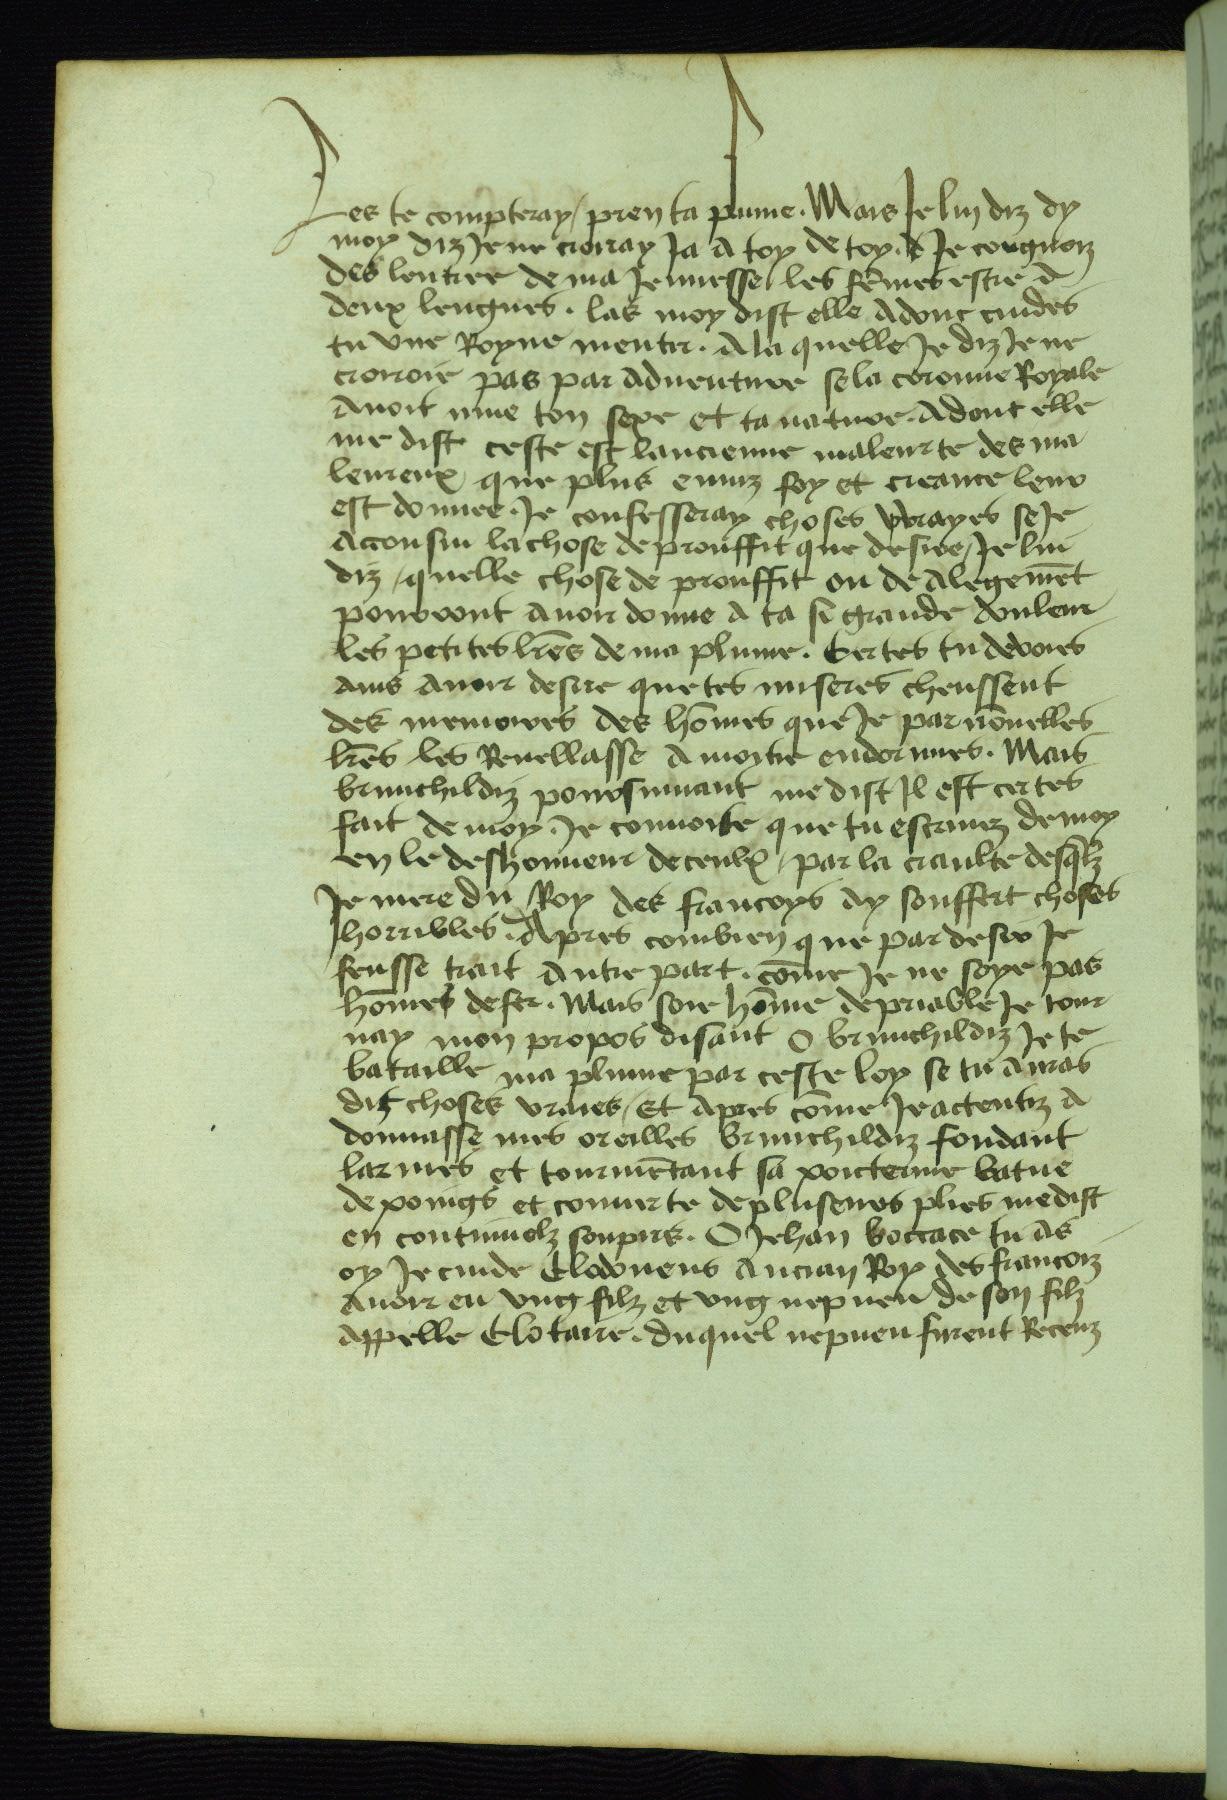 Les te compteray / pren ta plume . Mais Je lui diz dy
moy diz Je ne croiray Ja a toy de toy . Je congnoiz
des lentree de ma Jennesse les fem̄es estre a
deux lengues . las moy dist elle Adonc cuides
tu vne Royne mentir . A la quelle Je diz Je ne
croiroie pas par aduenture se la coronne Royale
Auoit mue ton sexe et ta nature . Adont elle
me dist ceste est lancienne maleurte des ma
leureux que plus enuiz foy et creance leur
est donnee . Je confesseray choses vrayes se Je
Acconsui la chose de prouffit que desire / Je lui
diz / quelle chose de prouffit ou de Alegemēt
pourront auoir donne a ta si grande douleur
les petites lr̄es de ma plume . Certes tu devoies
ains auoir desire que tes miseres cheussent
des memoires des hōmes que Je par nouuelles
lr̄es les Reuellasse a moitie endormies . Mais
brunchildiz poursuiuant me dist Il est certes
fait de moy . Je conuoite que tu escriuez de moy
en le deshonneur de ceulx / par la craulte desqlz
Je mere du Roy des francoys ay souffert choses
horribles . Apres combien que par desir Je
feusse trait autre part . cōme Je ne soye pas
hōmes de fer . Mais soie hōme depriable Je tour
nay mon propos disant O brunchildiz Je te
bataille ma plume par ceste loy se tu auras
dit choses vraies / Et apres cōme Je actentiz a
donnasse mes oreilles brunchildiz fondant
larmes et tourmētant sa poicterine batue
de poings et couuerte de pluseurs plies me dist
en continuelz soupirs . O Jehan boccace tu as
oy Je cuide Clodoueus ancian Roy des francoiz
auoir eu vng filz et vng nepueu de son filz
appelle Clotaire . duquel nepueu furent Receuz